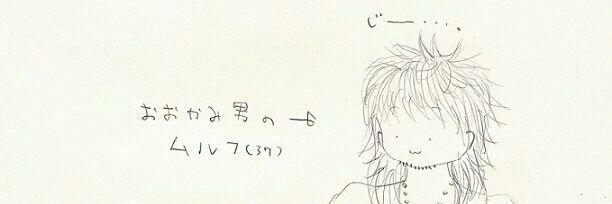 じー・・・。
おおかみ男の
ムルフ(37)